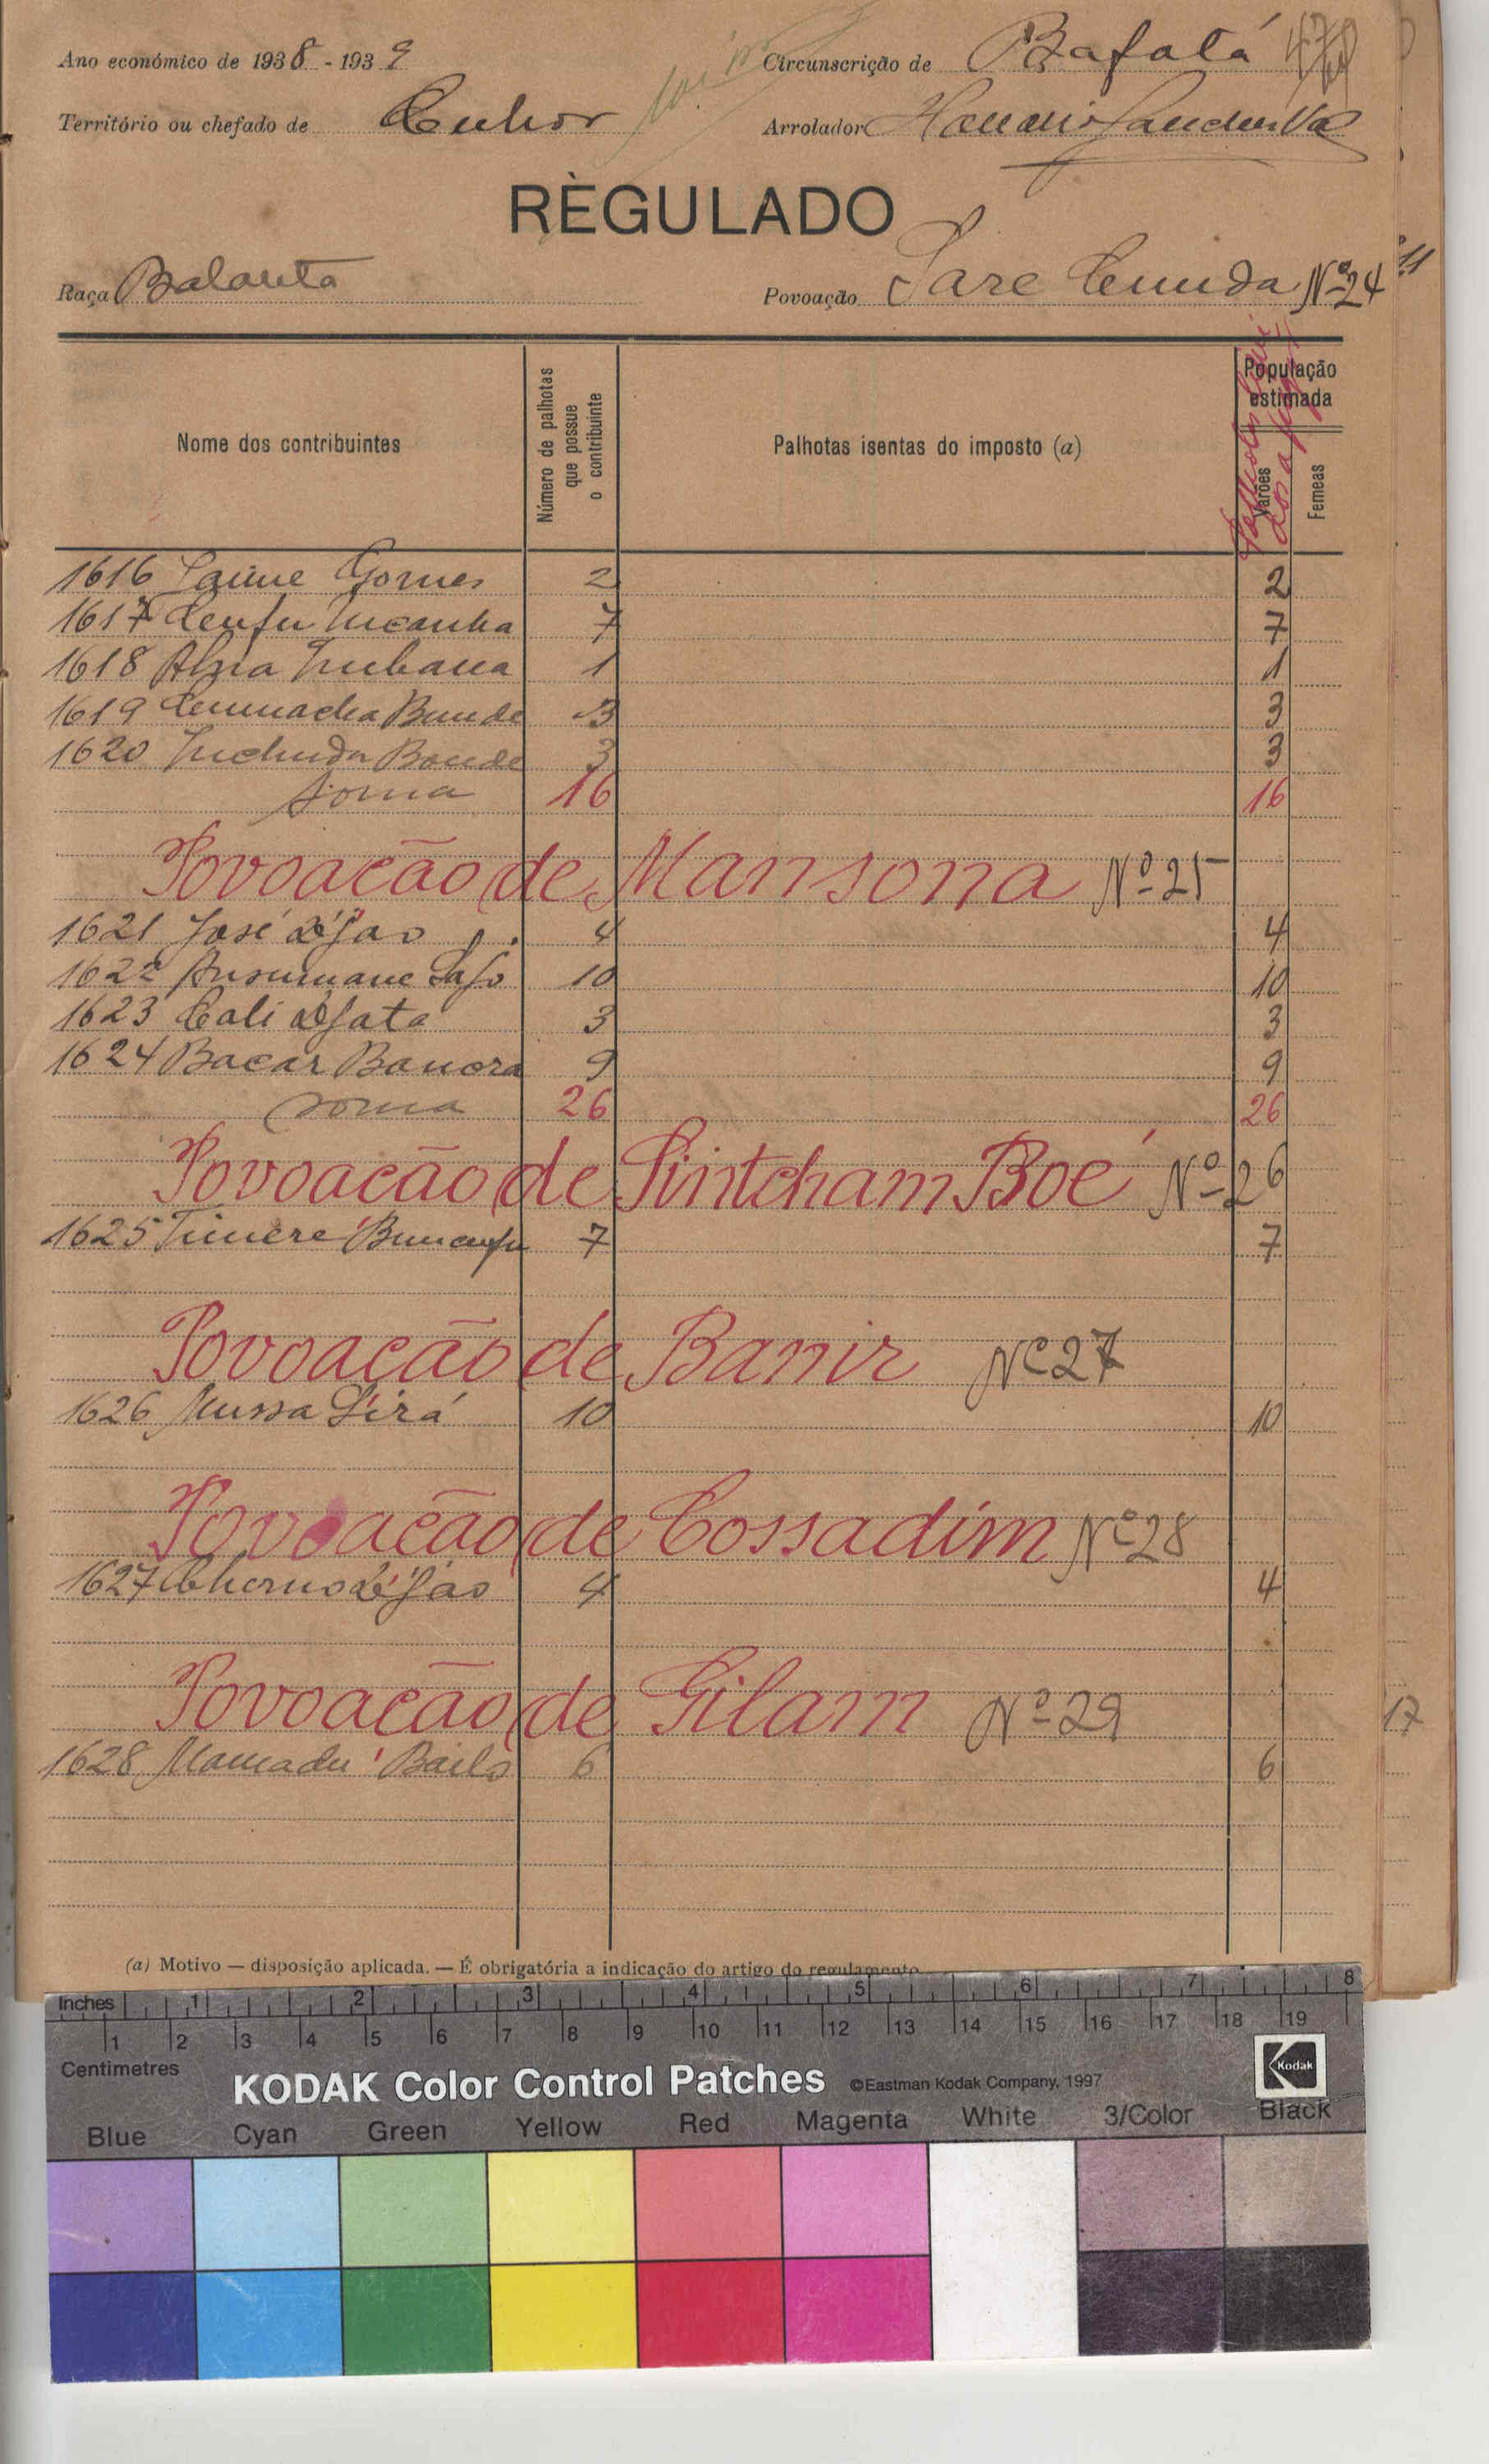 Ano económico de 1938 - 1939
Circunscrição de Bafatá
Território ou chefado de Cuhor
Arrolador
RÈGULADO
Raça Balanta
Povoação Sare Cunda Nº 24
Nome dos contribuintes
Número de palhotas que possue o contribuinte
Palhotas isentas do imposto (a)
População estimada
Varões
Femeas
1616 Jaime Gomes 2 2
1617 7 7
1618 1 1
1619 Bunde 3 3
1620 Bonde 3 3
Soma 16 16
Povoacão de Mansona Nº 25
1621 José D'Jao 4 4
1622 Ansumane 10 10
1623 Cali DJata 3 3
1624 Bacar Banora 9 9
Soma 26 26
Povoacão de Sintcham Boé Nº 26
1625 7 7
Povoacão de Banir Nº 27
1626 Mussa Sirá 10 10
Povoacão de Cossadim Nº 28
1627 Cherno D'Jao 4 4
Povoacão de Gilam Nº 29
1628 Mamadu Bailo 6 6
17
(a) Motivo — disposição aplicada. — É obrigatória a indicação do artigo do regulamento
Inches 1 2 3 4 5 6 7 8
1 2 3 4 5 6 7 8 9 10 11 12 13 14 15 16 17 18 19
Centimetres
KODAK Color Control Patches ©Eastman Kodak Company, 1997
Kodak
Blue Cyan Green Yellow Red Magenta White 3/Color Black